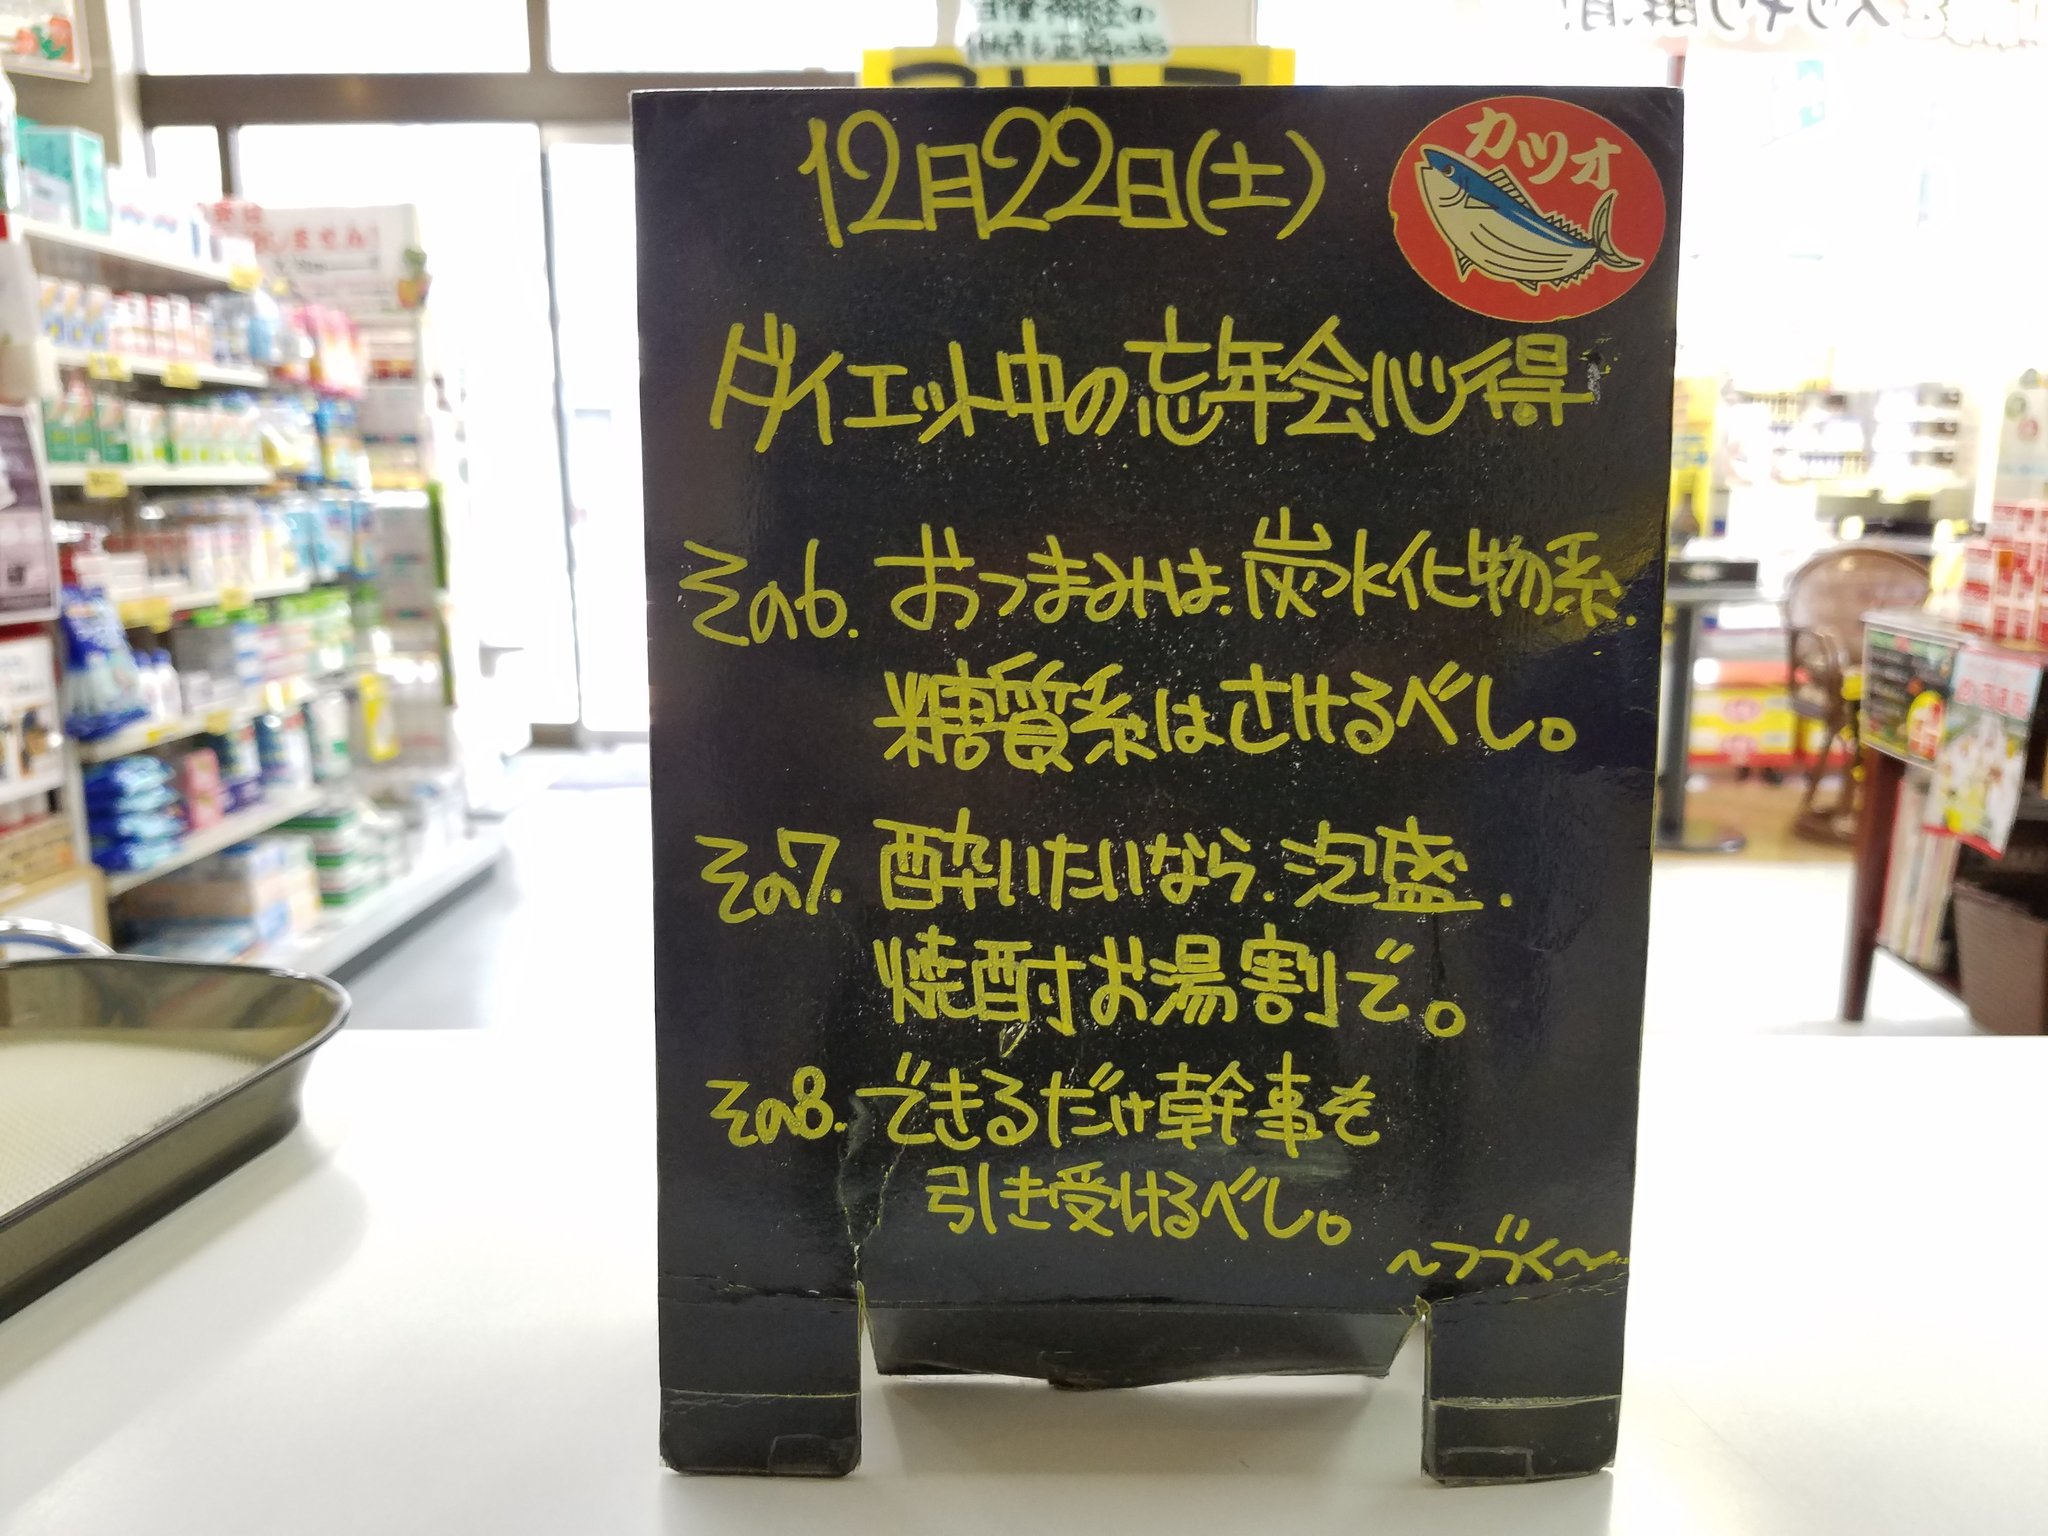 12月22日(土)
カツオ
ダイエット中の忘年会心得
その6. おつまみは、炭水化物系、
糖質系はさけるべし。
その7. 酔いたいなら、泡盛、
焼酎お湯割で。
その8. できるだけ幹事を
引き受けるべし。
〜つづく〜